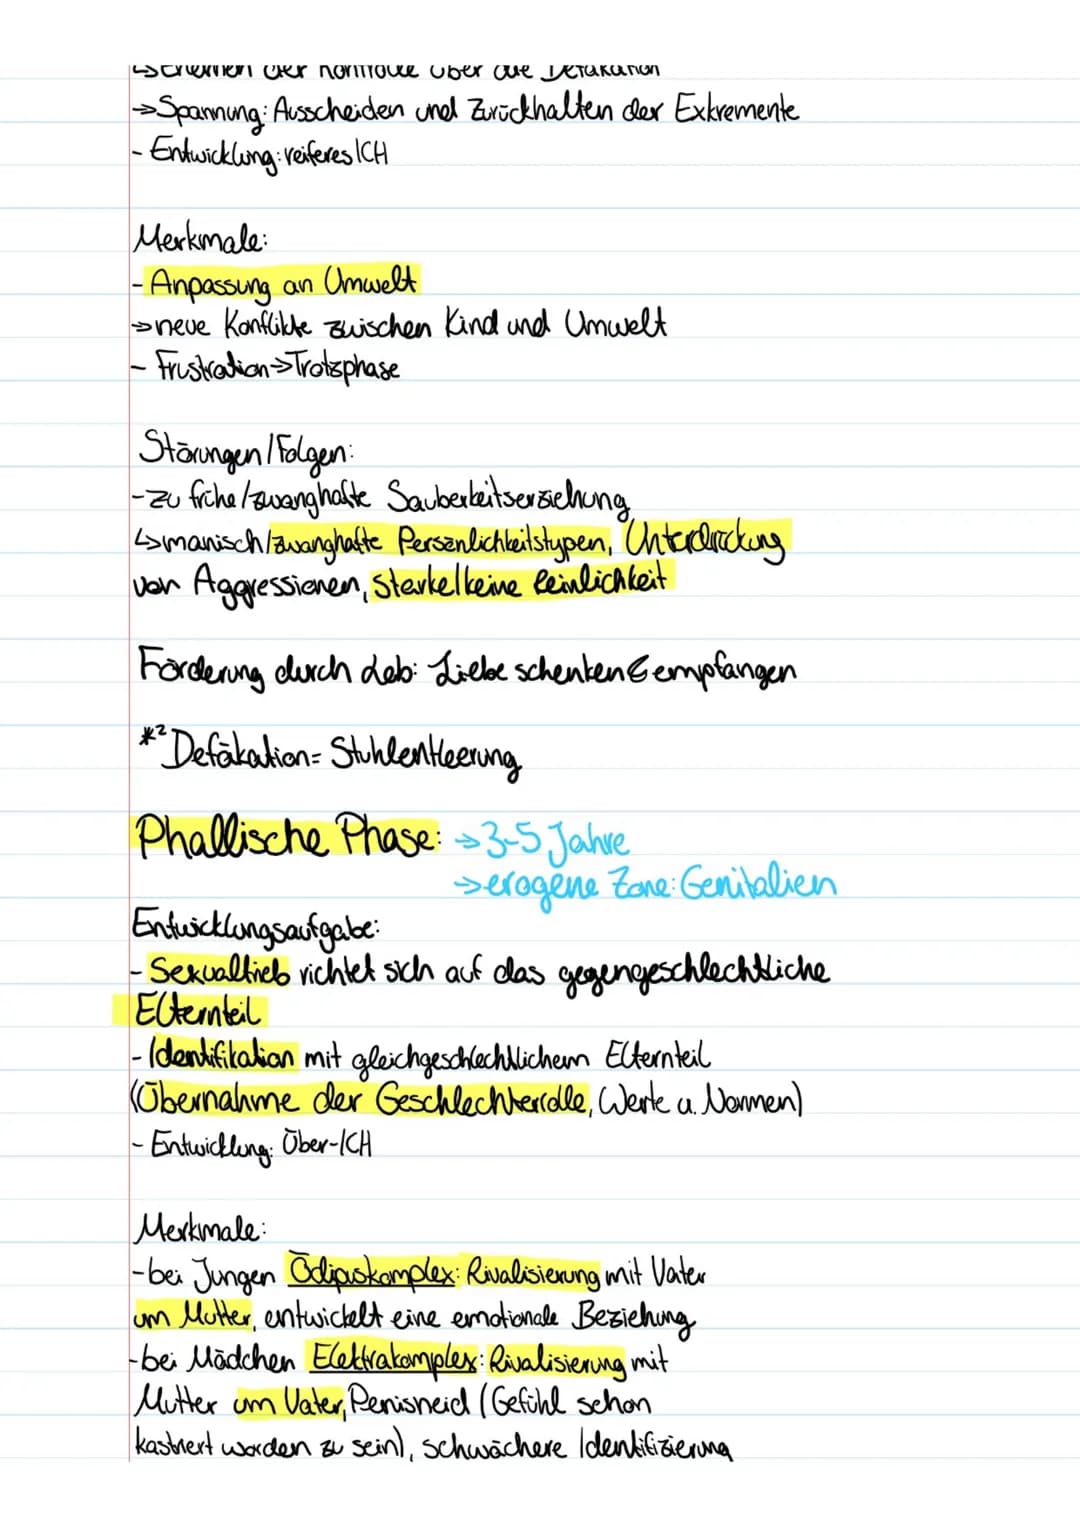 ↳Erlernen der Kontrolle über die Defäkation
→Spannung: Ausscheiden und Zurückhalten der Exkremente
- Entwicklung: reiferes ICH
Merkmale:
- Anpassung an Umwelt
→neue Konflikte zwischen Kind und Umwelt
- Frustration→Trotzphase
Störungen/Folgen:
-zu frühe/zwanghafte Sauberkeitserziehung
↳manisch/zwanghafte Persönlichkeitstypen, Unterdrückung
von Aggressionen, starke/keine Reinlichkeit
Förderung durch Leb: Liebe schenken & empfangen
*² Defäkation= Stuhlentleerung
Phallische Phase: →3-5 Jahre
→erogene Zone: Genitalien
Entwicklungsaufgabe:
- Sexualtrieb richtet sich auf das gegengeschlechtliche
Elternteil
- Identifikation mit gleichgeschlechtlichem Elternteil
(Übernahme der Geschlechterrolle, Werte u. Normen)
- Entwicklung: Über-ICH
Merkmale:
-bei Jungen Ödipuskomplex: Rivalisierung mit Vater
um Mutter, entwickelt eine emotionale Beziehung
-bei Mädchen Elektrakomplex: Rivalisierung mit
Mutter um Vater, Penisneid (Gefühl schon
kastriert worden zu sein), schwächere Identifizierung